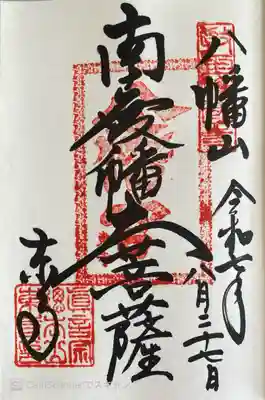 八幡山
令和七年
八月二十七日
南無八幡大菩薩
東寺
真言宗
總本山
CamScannerでスキャン